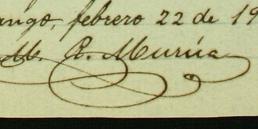 ango, febrero 22 de 19
M. R. Murúa